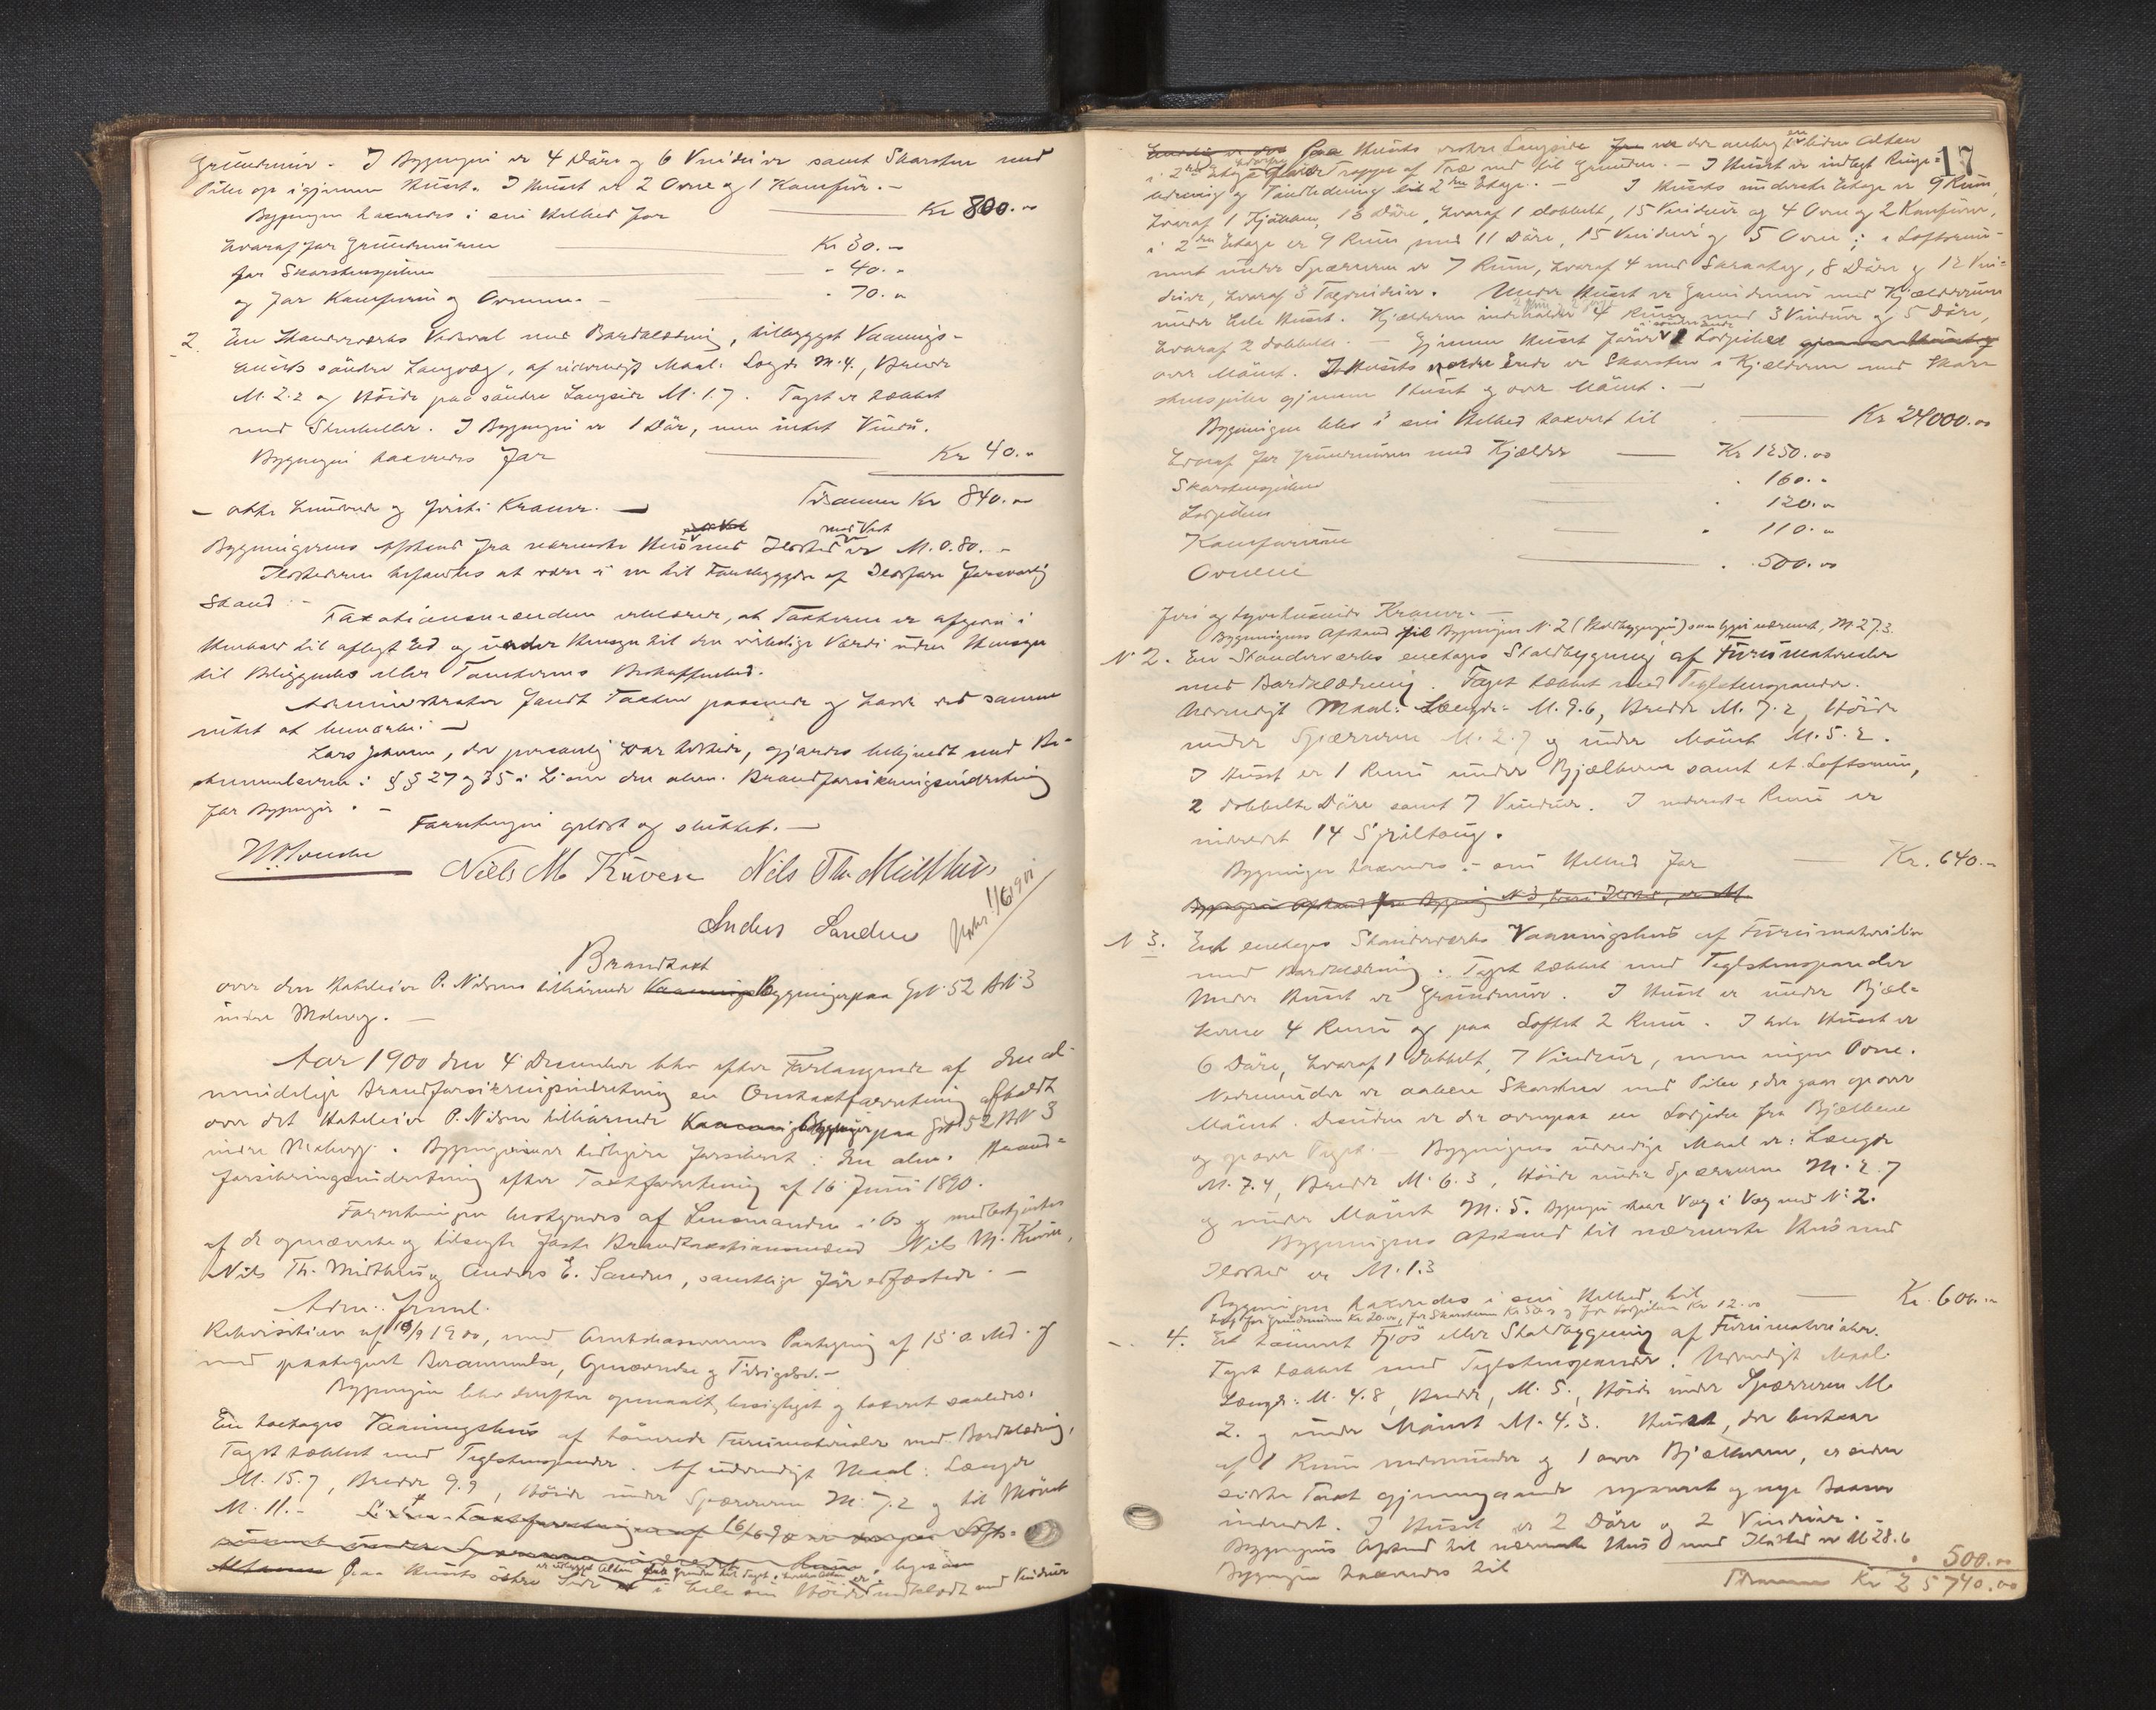 Grundmur. I Bygningen er 4 Döre og 6 Vinduer samt Skorsten med
Pibe op igjennem Huset. I Huset er 2 Ovne og 1 Komfur. -
Bygningen taxeredes i sin Helhed for Kr 800.00
hvoraf for Grundmuren Kr 30. -
for Skorstenspiben - 40. -
og for Komfuren og Ovnene. - - 70. -
2. En Standværks Vedsval med Bordklædning, tilbygget Vaanings-
husets söndre Langvæg, af udvendigt Maal: Længde M. 4., Bredde
M. 2.2 og Höide paa söndre Langside M. 1.7. Taget er tækket
med Stenheller. I Bygningen er 1 Dör, men intet Vindu.
Bygningen taxeredes for Kr 40. -
Tilsammen Kr 840. -
- otte hundrede og förti Kroner. -
med Vest
Bygningernes Afstand fra nærmeste Hus med Ildsted er M. 0.80. -
Ildstederne befandtes at være i en til Forebyggelse af Ildsfare forsvarlig
Stand. -
Taxationsmændene erklærer, at Taxterne er afgivne i
Henhold til aflagt Ed og under Hensyn til den virkelige Værdi uden Hensyn
til Beliggenhed eller Tomternes Beskaffenhed.
Administrator fandt Taxten passende og havde ved samme
intet at bemærke. -
Lars Johnsen, der personlig var tilstede, gjordes bekjendt med Be-
stemmelserne i §§ 27 og 35 i Lov om den alm. Brandforsikringsindretning
for Bygninger. -
Forretningen oplæst og sluttet. -
Niels M Kuven Nils Th. Midthus
Anders Sandven
Brandtaxt
over den Hoteleier P. Nilsen tilhörende Vaanings Bygninger paa Gr No 52 Br No 3
indre Moberg. -
Aar 1900 den 4 December blev efter Forlangende af den al-
mindelige Brandforsikringsindretning en Omtaxtforretning afholdt
over det Hoteleier P. Nilsen tilhörende Vaanings Bygninger paa Gr No 52 Br No 3
indre Moberg. Bygningerne er tidligere forsikret i den alm. Brand-
forsikringsindretning efter Taxtforretning af 16 Juni 1890.
Forretningen bestyredes af Lensmanden i Os og medbetjentes
af de opnævnte og tilsagte faste Brandtaxtationsmænd Nils M. Kuven,
Nils Th. Midthus og Anders E. Sandven, samtlige för edfæstede. -
Adm. freml.
Rekvisition af 10/9 1900, med Amtskasserens Paategning af 15 s. Md. og
med paategnet Berammelse, Opnævnelse og Tilsigelse. -
Bygningen blev derefter opmaalt, besigtiget og taxeret saaledes:
En toetages Vaaningshus af tömrede Furumaterialer med Bordklædning,
Taget tækket med Teglstenspander. Af udvendigt Maal: Længde
M. 15.7, Bredde 9.9, Höide under Spærrerne M. 7.2 og til Mönet
M. 11. -
17
I Huset er indlagt Ringe-
ledning og Tændledning til 2den Etage. - I Husets underste Etage er 9 Rum,
hvoraf 1 Kjökken, 13 Döre, hvoraf 1 dobbelt, 15 Vinduer og 4 Ovne og 2 Komfurer,
i 2den Etage er 9 Rum med 11 Döre, 15 Vinduer og 5 Ovne; i Loftsrum-
met under Spærrerne er 7 Rum, hvoraf 4 med Skraatag, 8 Döre og 12 Vin-
duer, hvoraf 3 Tagvinduer. Under Huset er Grundmur med Kjælderrum
under hele Huset. Kjælderen indeholder 4 Rum med 3 Vinduer og 5 Döre,
hvoraf 2 dobbelte. - Gjennem Huset förer 1 Sodpibe
over Mönet. I Husets nordre Ende er Skorsten i Kjælderen med Skor-
stenspibe gjennem Huset og over Mönet. -
Bygningen blev i sin Helhed taxeret til Kr 24000.00
hvoraf for Grundmuren med Kjælder Kr 1250.00
Skorstenspiben - 160. -
Sodpiben - 120. -
Komfurerne - 110. -
Ovnene - 500.00
Fire og tyvetusinde Kroner. -
Bygningens Afstand til Bygningen No 2 (Staldbygningen) som ligger nærmest, M. 27.3.
No 2. En Standværks enetages Staldbygning af Furumaterialer
med Bordklædning. Taget tækket med Teglstenspander.
Udvendigt Maal: Længde M. 9.6, Bredde M. 7.2, Höide
under Spærrerne M. 2.7 og under Mönet M. 5.2.
I Huset er 1 Rum under Bjælkerne samt et Loftsrum,
2 dobbelte Döre samt 7 Vinduer. I nederste Rum er
indredet 14 Spiltoug.
Bygningen taxeredes i sin Helhed for Kr. 640. -
No 3. Et enetages Standværks Vaaningshus af Furumaterialer
med Bordklædning. Taget tækket med Teglstenspander
Under Huset er Grundmur. I Huset er under Bjæl-
kerne 4 Rum og paa Loftet 2 Rum. I hele Huset er
6 Döre, hvoraf 1 dobbelt, 7 Vinduer, men ingen Ovne.
Nedenunder er aaben Skorsten med Pibe, der gaar op over
Mönet. Desuden er der ovenpaa en Sodpibe fra Bjælkene
og op over Taget. - Bygningens udvendige Maal er: Længde
M. 7.4, Bredde M. 6.3, Höide under Spærrerne M. 2.7
og under Mönet M. 5. Bygningen staar Væg i Væg med No 2.
Bygningens Afstand til nærmeste Hus med
Ildsted er M. 1.3
Bygningen taxeredes i sin Helhed til Kr. 600. -
hvoraf for Grundmuren Kr 20.00, for Skorstenen Kr 50.00 og for Sodpiben Kr 12.00
4. En tömret Fjös eller Staldbygning af Furumaterialer.
Taget tækket med Teglstenspander. Udvendigt Maal:
Længde: M. 4.8, Bredde, M. 5., Höide under Spærrerne M.
2. og under Mönet M. 4.3. Huset, der bestaar
af 1 Rum nedenunder og 1 over Bjælkerne, er siden
sidste Taxt gjennemgaaende repareret og nye Baaser
indredet. I Huset er 2 Döre og 2 Vinduer. -
Bygningens Afstand til nærmeste Hus med Ildsted er M 28.6
Bygningen taxeredes til - 500.00
Tilsammen Kr 25740.00